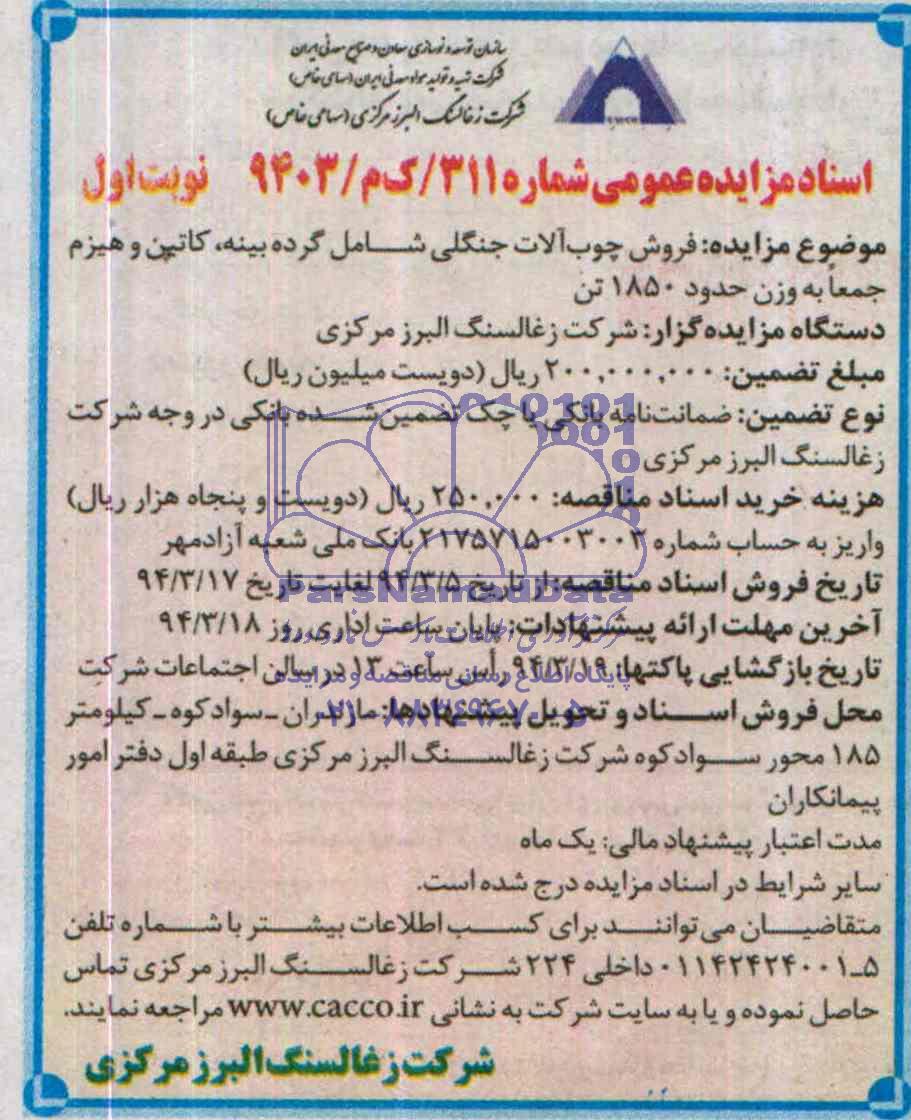 سازمان توسعه و نوسازی معادن و صنایع معدنی ایران
شرکت تهیه و تولید مواد معدنی ایران (سهامی خاص)
شرکت زغالسنگ البرز مرکزی (سهامی خاص)
اسناد مزایده عمومی شماره ۳۱۱/ک‌م/۹۴۰۳ نوبت اول
موضوع مزایده: فروش چوب‌آلات جنگلی شامل گرده بینه، کاتین و هیزم
جمعاً به وزن حدود ۱۸۵۰ تن
دستگاه مزایده‌گزار: شرکت زغالسنگ البرز مرکزی
مبلغ تضمین: ۲۰۰,۰۰۰,۰۰۰ ریال (دویست میلیون ریال)
نوع تضمین: ضمانت‌نامه بانکی یا چک تضمین شده بانکی در وجه شرکت
زغالسنگ البرز مرکزی
هزینه خرید اسناد مناقصه: ۲۵۰,۰۰۰ ریال (دویست و پنجاه هزار ریال)
واریز به حساب شماره ۲۱۷۵۷۱۵۰۰۳۰۰۳ بانک ملی شعبه آزادمهر
تاریخ فروش اسناد مناقصه: از تاریخ ۹۴/۳/۵ لغایت تاریخ ۹۴/۳/۱۷
آخرین مهلت ارائه پیشنهادات: پایان ساعت اداری روز ۹۴/۳/۱۸
تاریخ بازگشایی پاکتها: ۹۴/۳/۱۹ رأس ساعت ۱۳ در سالن اجتماعات شرکت
محل فروش اسناد و تحویل پیشنهادها: مازندران ـ سوادکوه ـ کیلومتر
۱۸۵ محور سوادکوه شرکت زغالسنگ البرز مرکزی طبقه اول دفتر امور
پیمانکاران
مدت اعتبار پیشنهاد مالی: یک ماه
سایر شرایط در اسناد مزایده درج شده است.
متقاضیان می‌توانند برای کسب اطلاعات بیشتر با شماره تلفن
۵ـ۰۱۱۴۲۴۲۴۰۰۱ داخلی ۲۲۴ شرکت زغالسنگ البرز مرکزی تماس
حاصل نموده و یا به سایت شرکت به نشانی www.cacco.ir مراجعه نمایند.
شرکت زغالسنگ البرز مرکزی
ParsNamadData
پایگاه اطلاع رسانی مناقصه و مزایده